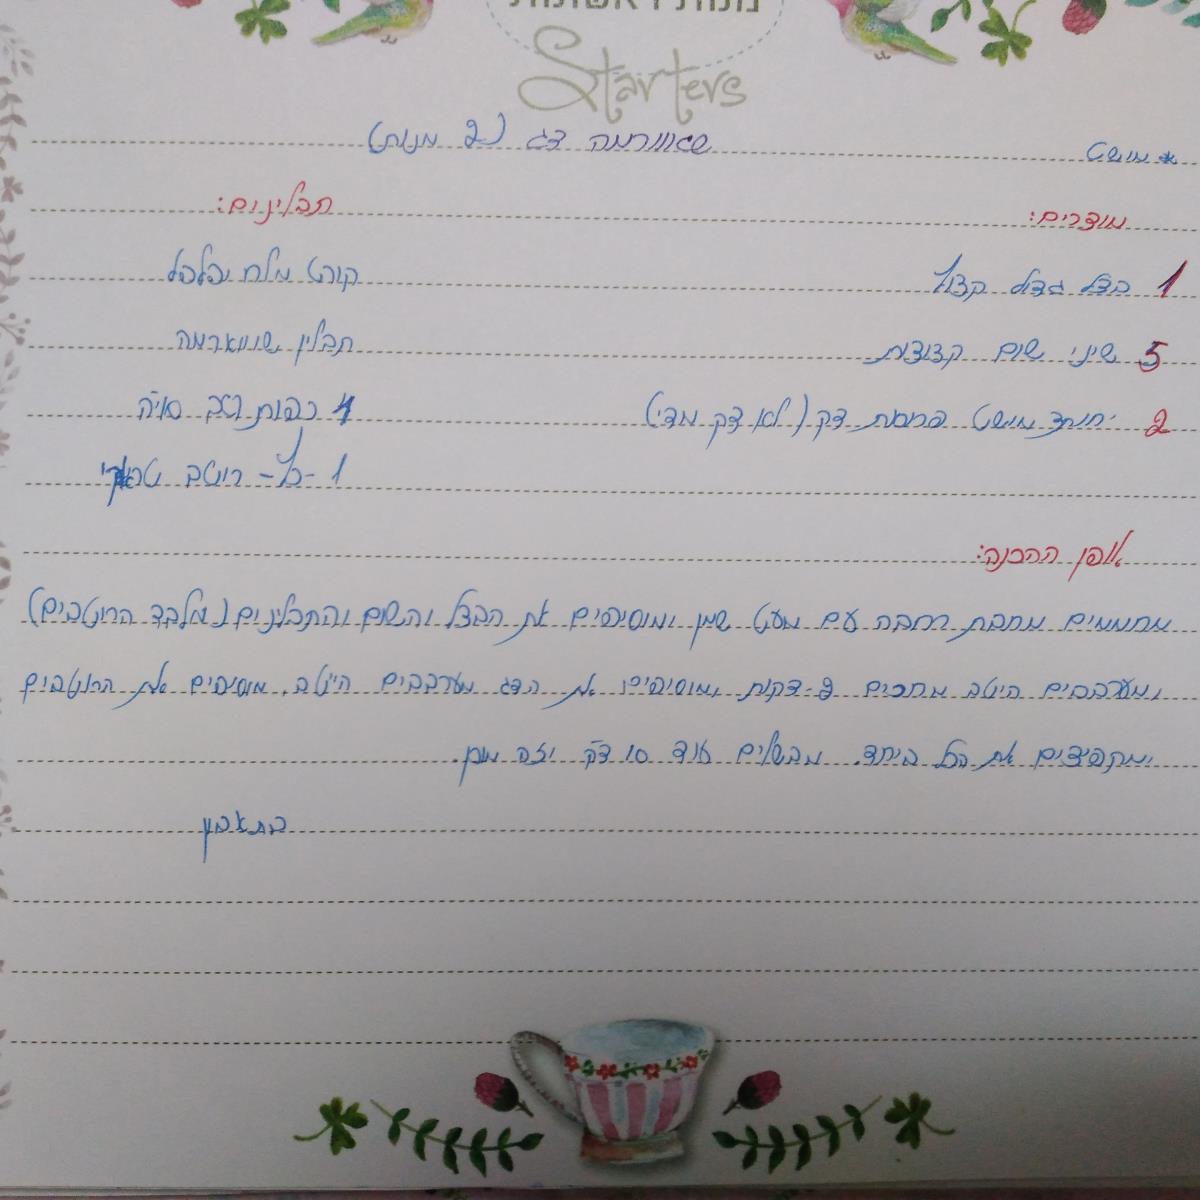 מנות ראשונות
Starters
שאווירמה דג (2 מנות)
* מושט
מוצרים:
תבלינים:
1 בצל גדול קצוץ
קורט מלח ופלפל
5 שיני שום קצוצות
תבלין שווארמה
2 יחיד מושט פרוסת דק (לא דק מדי)
4 כפות רוטב סויה
1 -כף- רוטב טריאקי
אופן ההכנה:
מחממים מחבת רחבה עם מעט שמן ומוסיפים את הבצל והשום והתבלינים (מלבד הרוטבים)
ומערבבים היטב מחכים 2 דקות ומוסיפים את הדג מערבבים היטב. מוסיפים את הרוטבים
ומקפיצים את הכל ביחד. מבשלים עוד 10 דק' וזה מוכן.
בתאבון